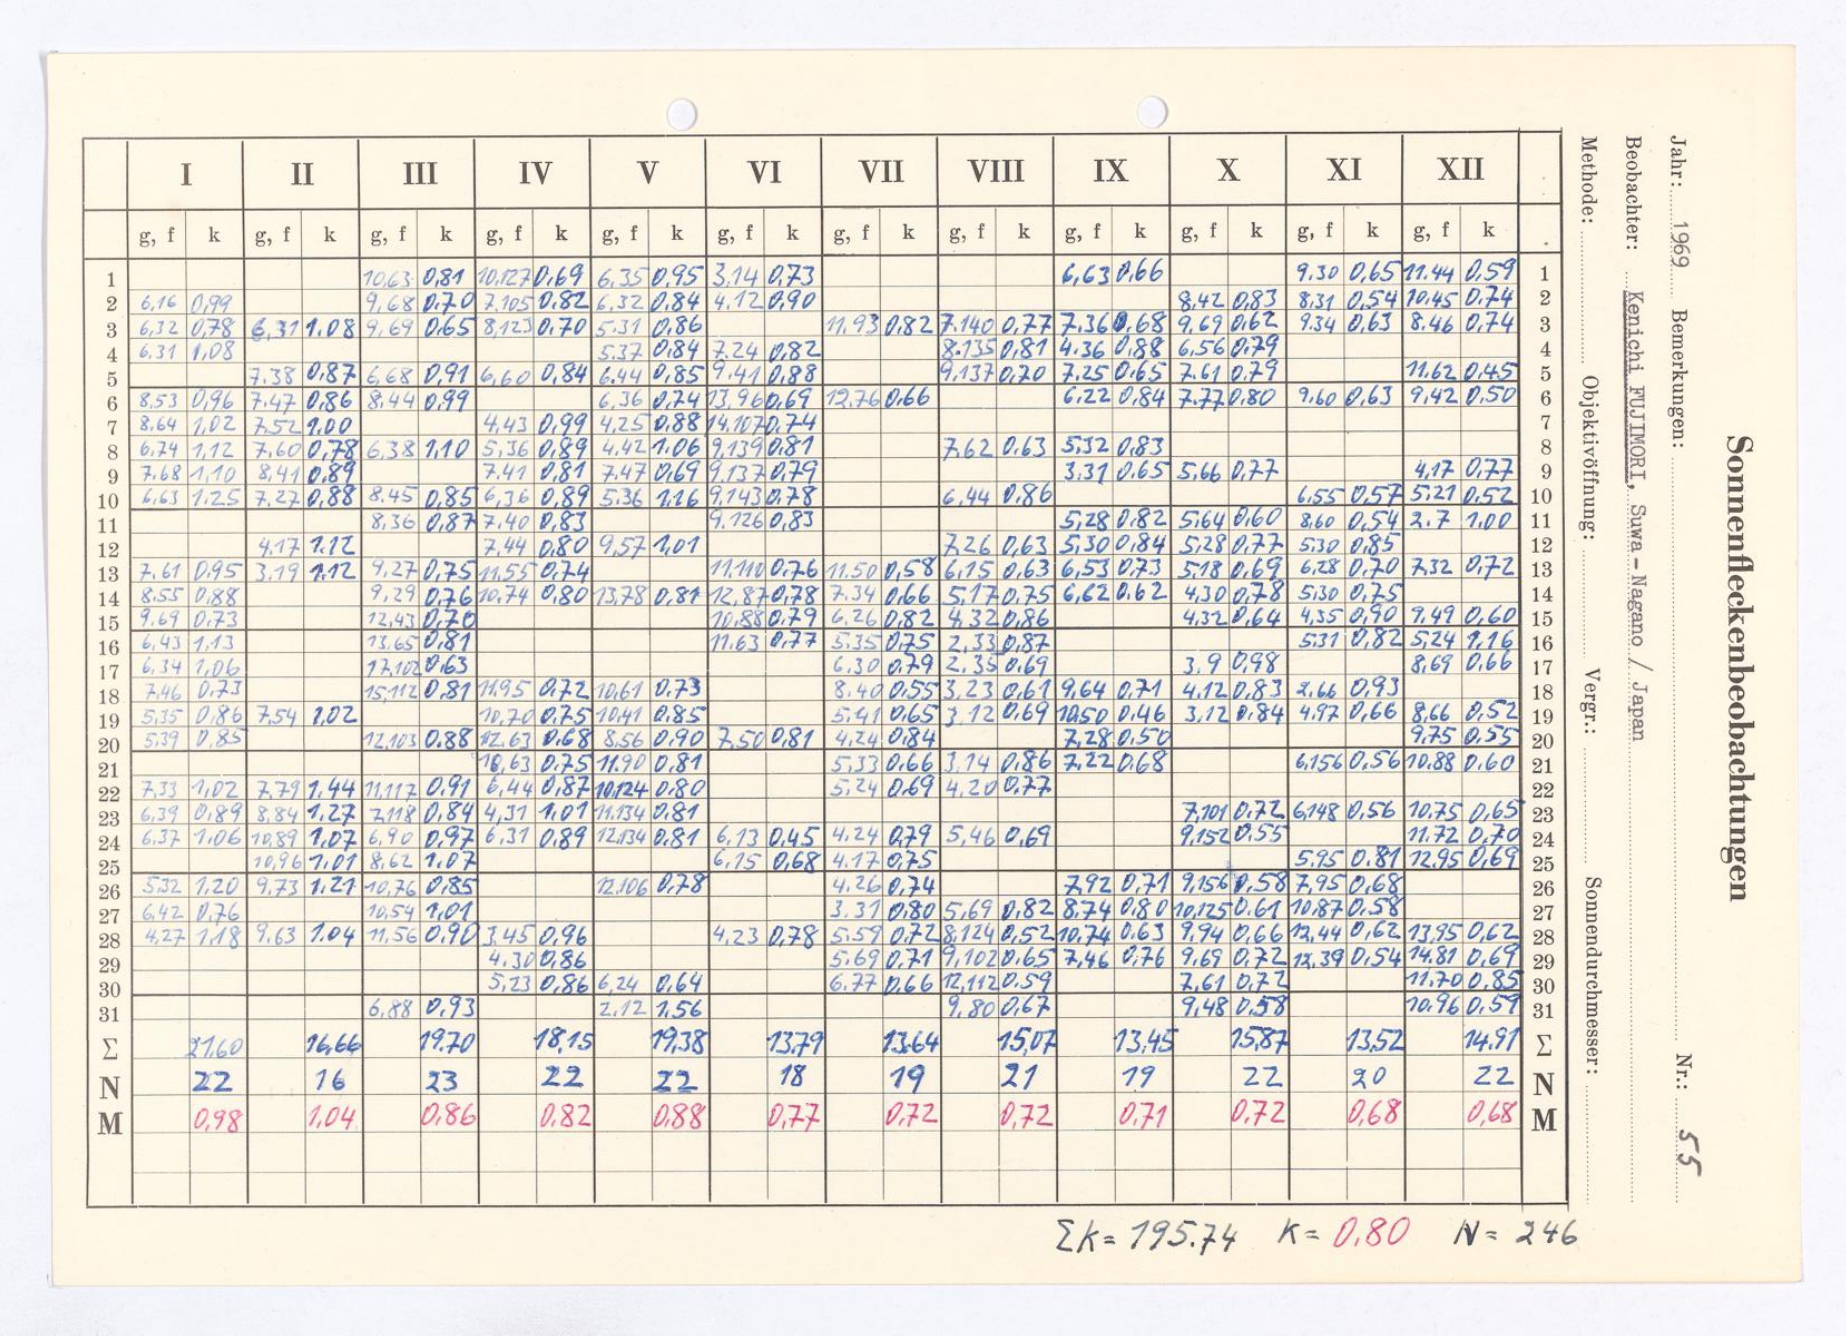 Sonnenfleckenbeobachtungen
Jahr: 1969 Bemerkungen: Nr.: 55
Beobachter: Kenichi FUJIMORI, Suwa-Nagano / Japan
Methode: Objektivöffnung: Vergr.: Sonnendurchmesser:
I II III IV V VI VII VIII IX X XI XII
g, f k g, f k g, f k g, f k g, f k g, f k g, f k g, f k g, f k g, f k g, f k g, f k
1 10,63 0,81 10,127 0,69 6,35 0,95 3,14 0,73 6,63 0,66 9,30 0,65 11,44 0,59 1
2 6,16 0,99 9,68 0,70 7,105 0,82 6,32 0,84 4,12 0,90 8,42 0,83 8,31 0,54 10,45 0,74 2
3 6,32 0,78 6,31 1,08 9,69 0,65 8,123 0,70 5,31 0,86 11,93 0,82 7,140 0,77 7,36 0,68 9,69 0,62 9,34 0,63 8,46 0,74 3
4 6,31 1,08 5,37 0,84 7,24 0,82 8,135 0,81 4,36 0,88 6,56 0,79 4
5 7,38 0,87 6,68 0,91 6,60 0,84 6,44 0,85 9,41 0,88 9,137 0,70 7,25 0,65 7,61 0,79 11,62 0,45 5
6 8,53 0,96 7,47 0,86 8,44 0,99 6,36 0,74 13,96 0,69 12,76 0,66 6,22 0,84 7,77 0,80 9,60 0,63 9,42 0,50 6
7 8,64 1,02 7,52 1,00 4,43 0,99 4,25 0,88 14,107 0,74 7
8 6,74 1,12 7,60 0,78 6,38 1,10 5,36 0,89 4,42 1,06 9,139 0,81 7,62 0,63 5,32 0,83 8
9 7,68 1,10 8,41 0,89 7,41 0,81 7,47 0,69 9,137 0,79 3,31 0,65 5,66 0,77 4,17 0,77 9
10 6,63 1,25 7,27 0,88 8,45 0,85 6,36 0,89 5,36 1,16 9,143 0,78 6,44 0,86 6,55 0,57 5,21 0,52 10
11 8,36 0,87 7,40 0,83 9,126 0,83 5,28 0,82 5,64 0,60 8,60 0,54 2,7 1,00 11
12 4,17 1,12 7,44 0,80 9,57 1,01 7,26 0,63 5,30 0,84 5,28 0,77 5,30 0,85 12
13 7,61 0,95 3,19 1,12 9,27 0,75 11,55 0,74 11,110 0,76 11,50 0,58 6,15 0,63 6,53 0,73 5,18 0,69 6,28 0,70 7,32 0,72 13
14 8,55 0,88 9,29 0,76 10,74 0,80 13,78 0,81 12,87 0,78 7,34 0,66 5,17 0,75 6,62 0,62 4,30 0,78 5,30 0,75 14
15 9,69 0,73 12,43 0,70 10,88 0,79 6,26 0,82 4,32 0,86 4,32 0,64 4,35 0,90 9,49 0,60 15
16 6,43 1,13 13,65 0,81 11,63 0,77 5,35 0,75 2,33 0,87 5,31 0,82 5,24 1,16 16
17 6,34 1,06 17,102 0,63 6,30 0,79 2,35 0,69 3,9 0,98 8,69 0,66 17
18 7,46 0,73 15,112 0,81 11,95 0,72 10,61 0,73 8,40 0,55 3,23 0,61 9,64 0,71 4,12 0,83 2,66 0,93 18
19 5,35 0,86 7,54 1,02 10,70 0,75 10,41 0,85 5,41 0,65 3,12 0,69 10,50 0,46 3,12 0,84 4,97 0,66 8,66 0,52 19
20 5,39 0,85 12,103 0,88 12,63 0,68 8,56 0,90 7,50 0,81 4,24 0,84 7,28 0,50 9,75 0,55 20
21 10,63 0,75 11,90 0,81 5,33 0,66 3,14 0,86 7,22 0,68 6,156 0,56 10,88 0,60 21
22 7,33 1,02 7,79 1,44 11,117 0,91 6,44 0,87 10,124 0,80 5,24 0,69 4,20 0,77 22
23 6,39 0,89 8,84 1,27 7,118 0,84 4,31 1,01 11,134 0,81 7,101 0,72 6,148 0,56 10,75 0,65 23
24 6,37 1,06 10,89 1,07 6,90 0,97 6,31 0,89 12,134 0,81 6,13 0,45 4,24 0,79 5,46 0,69 9,152 0,55 11,72 0,70 24
25 10,96 1,01 8,62 1,07 6,15 0,68 4,17 0,75 5,95 0,81 12,95 0,69 25
26 5,32 1,20 9,73 1,21 10,76 0,85 12,106 0,78 4,26 0,74 7,92 0,71 9,156 0,58 7,95 0,68 26
27 6,42 0,76 10,54 1,01 3,31 0,80 5,69 0,82 8,74 0,80 10,125 0,61 10,87 0,58 27
28 4,27 1,18 9,63 1,04 11,56 0,90 3,45 0,96 4,23 0,78 5,59 0,72 8,124 0,52 10,74 0,63 9,94 0,66 12,44 0,62 13,95 0,62 28
29 4,30 0,86 5,69 0,71 9,102 0,65 7,46 0,76 9,69 0,72 12,39 0,54 14,81 0,69 29
30 5,23 0,86 6,24 0,64 6,77 0,66 12,112 0,59 7,61 0,72 11,70 0,85 30
31 6,88 0,93 2,12 1,56 9,80 0,67 9,48 0,58 10,96 0,59 31
Σ 21,60 16,66 19,70 18,15 19,38 13,79 13,64 15,07 13,45 15,87 13,52 14,91 Σ
N 22 16 23 22 22 18 19 21 19 22 20 22 N
M 0,98 1,04 0,86 0,82 0,88 0,77 0,72 0,72 0,71 0,72 0,68 0,68 M
Σk = 195.74 K = 0,80 N = 246